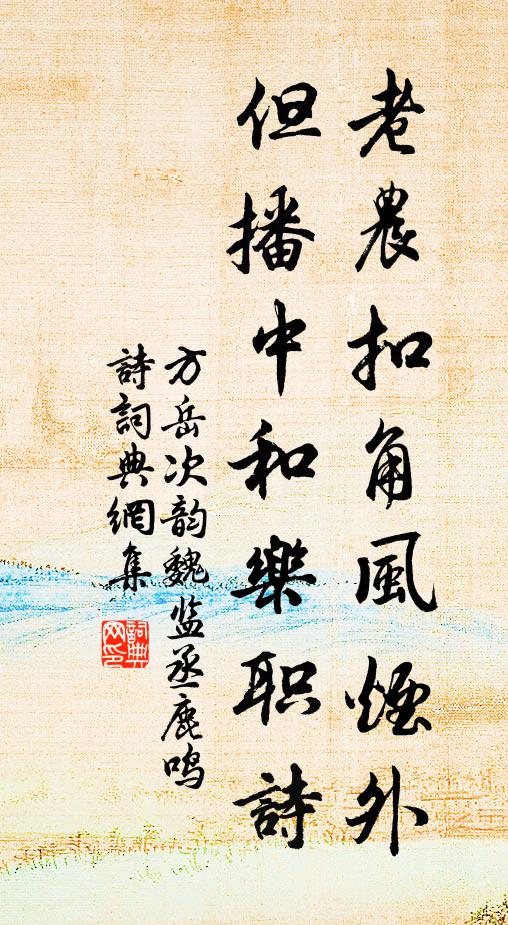 老農扣角風煙外
但播中和樂职詩
方岳次韵魏监丞鹿鸣
詩詞典網集
詞典
网印